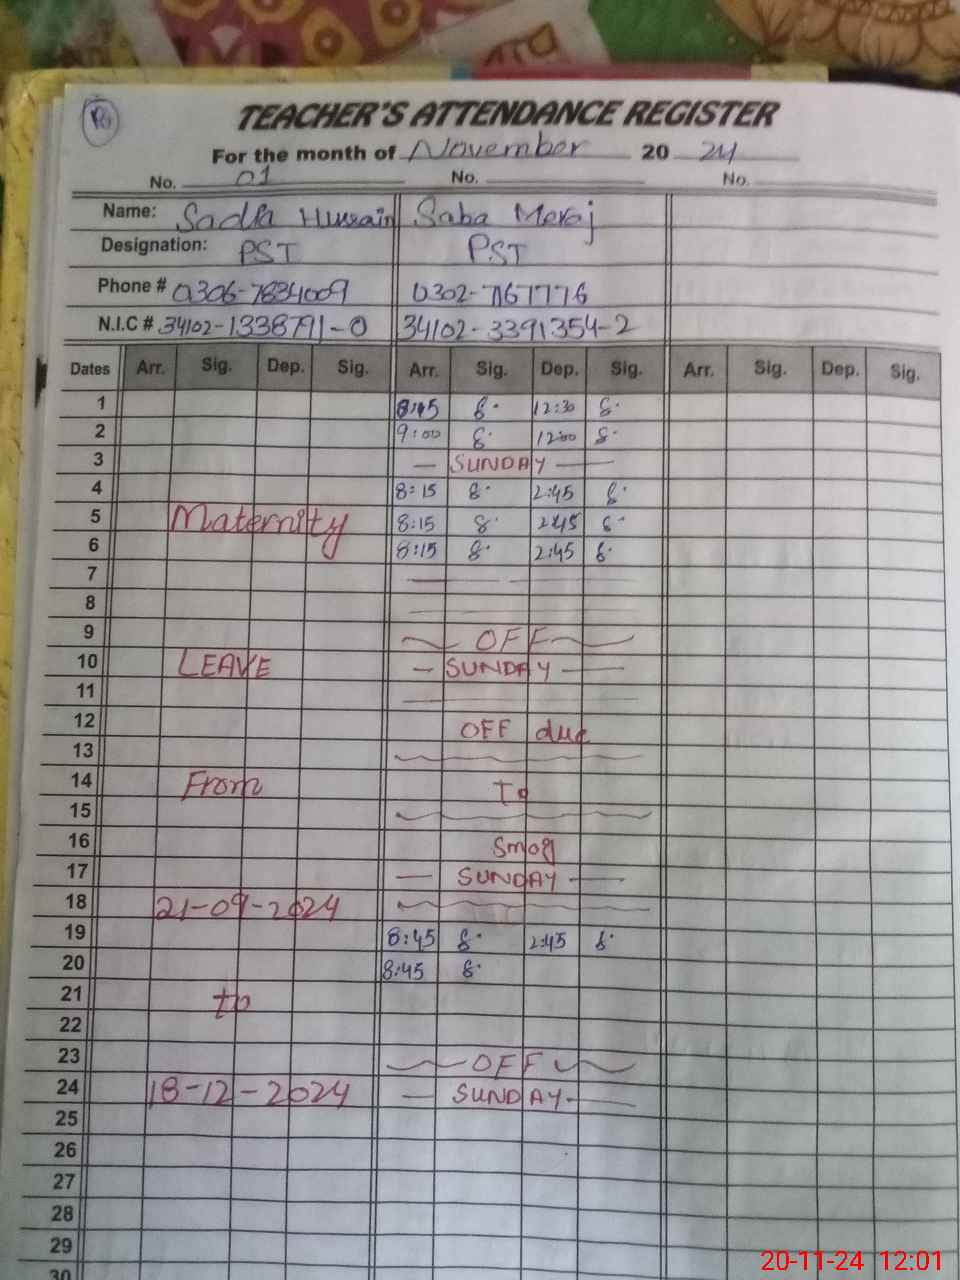 PG
TEACHER'S ATTENDANCE REGISTER
For the month of November 20 24
No. 01 No. No.
Name: Sadia Hussain Saba Meraj
Designation: PST PST
Phone # 0306-7834009 0302-7167776
N.I.C # 34102-1338791-0 34102-3391354-2
Dates Arr. Sig. Dep. Sig. Arr. Sig. Dep. Sig. Arr. Sig. Dep. Sig.
1 8:45 12:30
2 9:00 12:00
3 SUNDAY
4 8:15 2:45
5 Maternity 8:15 2:45
6 8:15 2:45
7
8
9 OFF
10 LEAVE SUNDAY
11
12 OFF due
13
14 From To
15
16 Smog
17 SUNDAY
18 21-09-2024
19 8:45 2:45
20 8:45
21 to
22
23 OFF
24 18-12-2024 SUNDAY
25
26
27
28
29
30
20-11-24 12:01